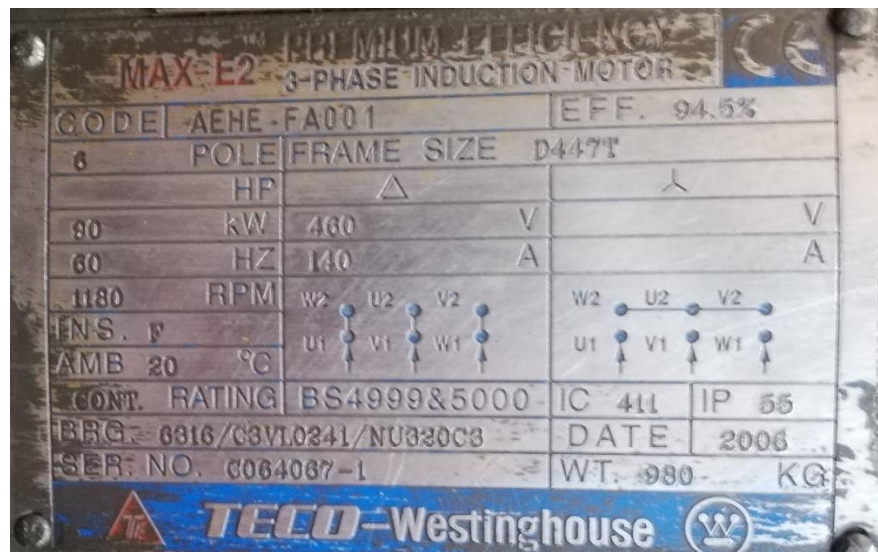 PREMIUM EFFICIENCY
MAX-E2 3-PHASE INDUCTION MOTOR CE
CODE AEHE-FA001 EFF. 94.5%
6 POLE FRAME SIZE D447T
HP △ Y
90 kW 460 V V
60 HZ 140 A A
1180 RPM W2 U2 V2 W2 U2 V2
INS. F U1 V1 W1 U1 V1 W1
AMB 20 °C
CONT. RATING BS4999&5000 IC 411 IP 55
BRG. 6316/C3VL0241/NU320C3 DATE 2006
SER. NO. 6064067-1 WT. 980 KG
TECO-Westinghouse W